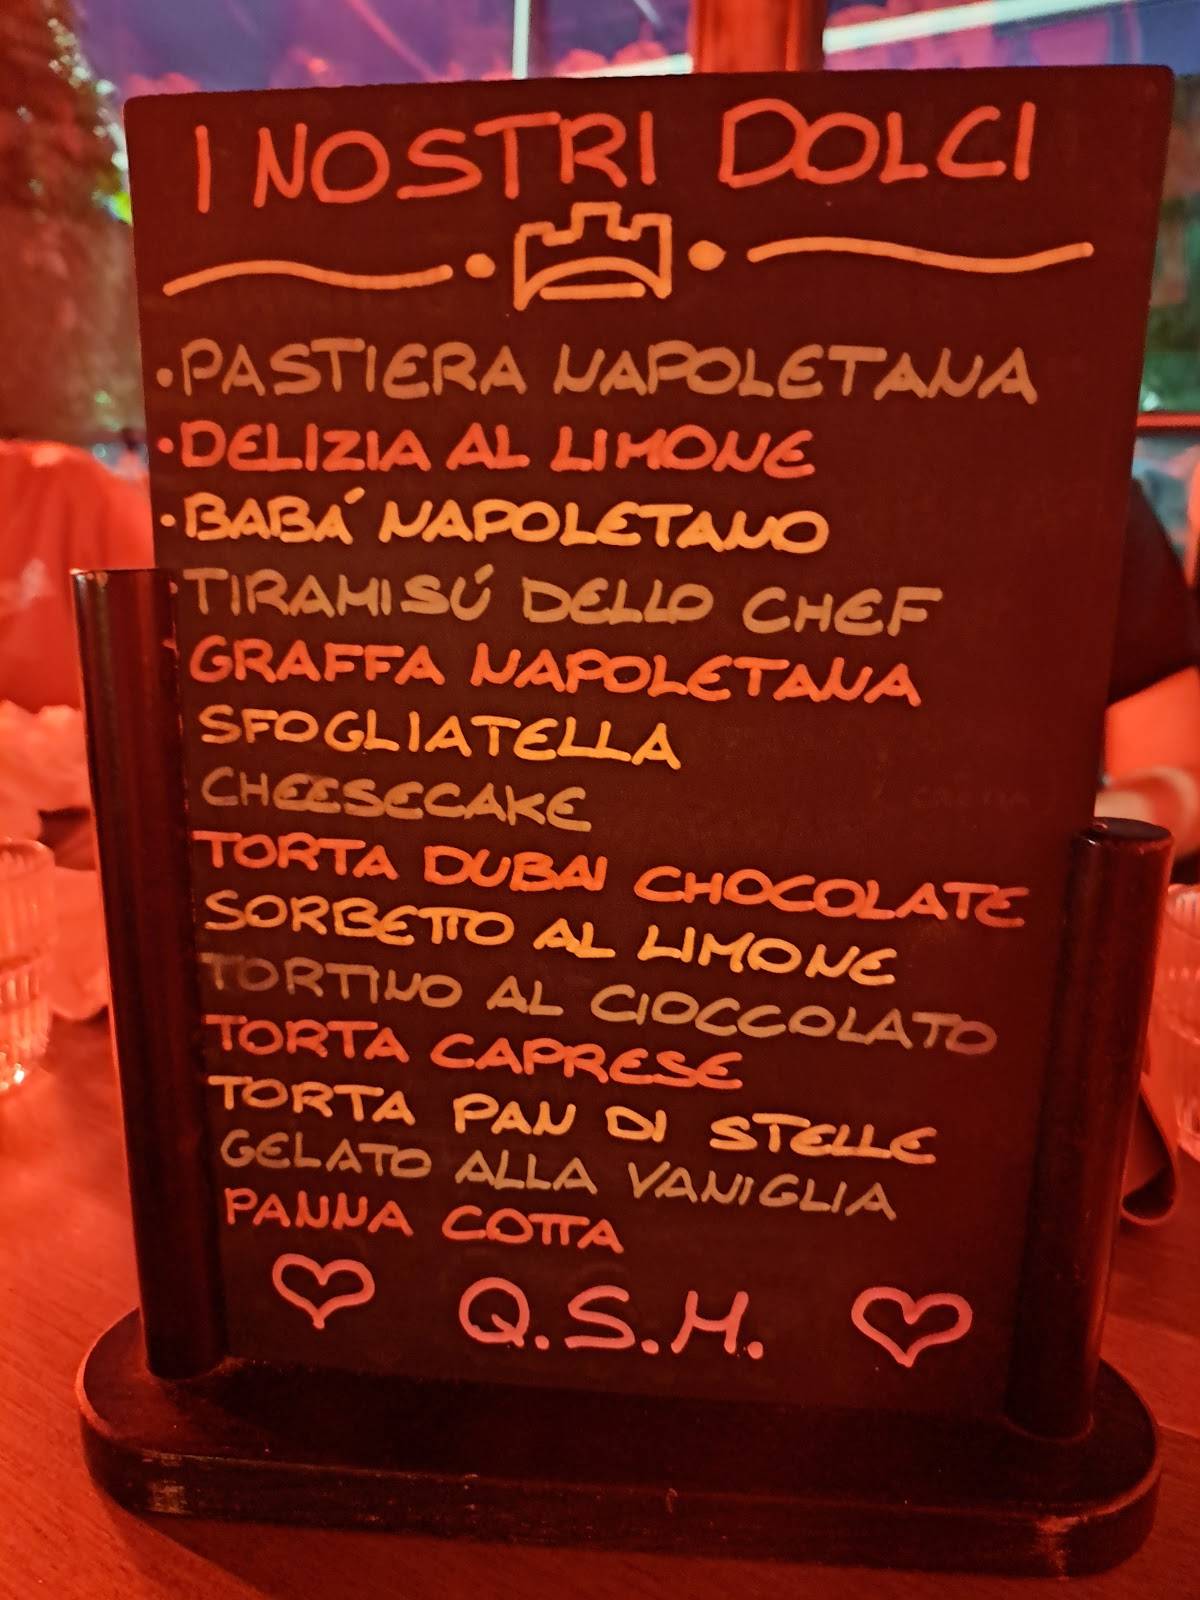 I NOSTRI DOLCI
• PASTIERA NAPOLETANA
• DELIZIA AL LIMONE
• BABÁ NAPOLETANO
• TIRAMISÚ DELLO CHEF
GRAFFA NAPOLETANA
SFOGLIATELLA
CHEESECAKE
TORTA DUBAI CHOCOLATE
SORBETTO AL LIMONE
TORTINO AL CIOCCOLATO
TORTA CAPRESE
TORTA PAN DI STELLE
GELATO ALLA VANIGLIA
PANNA COTTA
Q.S.M.